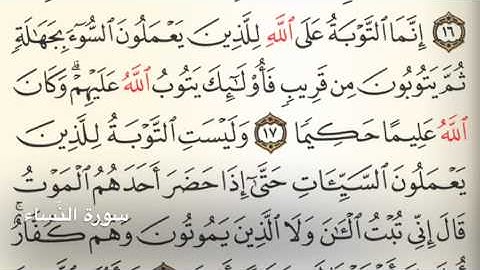 ١٦ إِنَّمَا ٱلتَّوْبَةُ عَلَى ٱللَّهِ لِلَّذِينَ يَعْمَلُونَ ٱلسُّوٓءَ بِجَهَـٰلَةٍ
ثُمَّ يَتُوبُونَ مِن قَرِيبٍ فَأُو۟لَـٰٓئِكَ يَتُوبُ ٱللَّهُ عَلَيْهِمْ ۗ وَكَانَ
ٱللَّهُ عَلِيمًا حَكِيمًا ١٧ وَلَيْسَتِ ٱلتَّوْبَةُ لِلَّذِينَ
يَعْمَلُونَ ٱلسَّيِّـَٔاتِ حَتَّىٰٓ إِذَا حَضَرَ أَحَدَهُمُ ٱلْمَوْتُ
سورة النساء
قَالَ إِنِّى تُبْتُ ٱلْـَٔـٰنَ وَلَا ٱلَّذِينَ يَمُوتُونَ وَهُمْ كُفَّارٌ ۚ